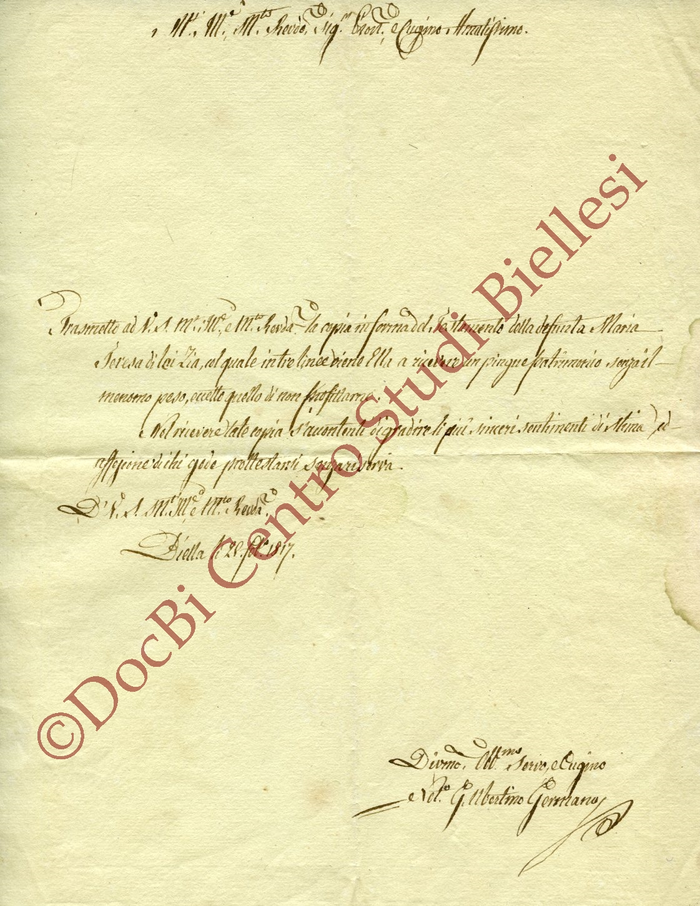 M.to Ill.e M.to Revdo. Sig.r Prot.e e Cugino Amatissimo.
Trasmetto ad V. S. M.to Ill.e e M.to Revda. la copia in forma del Testamento della defunta Maria
Teresa di Lei Zia, col quale intro linee viene Ella a ricevere un pingue patrimonio senza il
menomo peso, eccetto quello di non profittarne.
Nel ricevere tale copia si accontenti di gradire li più sinceri sentimenti di stima, ed
affezione di chi gode prottestarsi senza riserva.
D' V. S. M.to Ill.e e M.to Revda.
Biella li 28. 1817.
Divmo. Obb.mo Servo, e Cugino
G. Ubertino Germano
©DocBi Centro Studi Biellesi